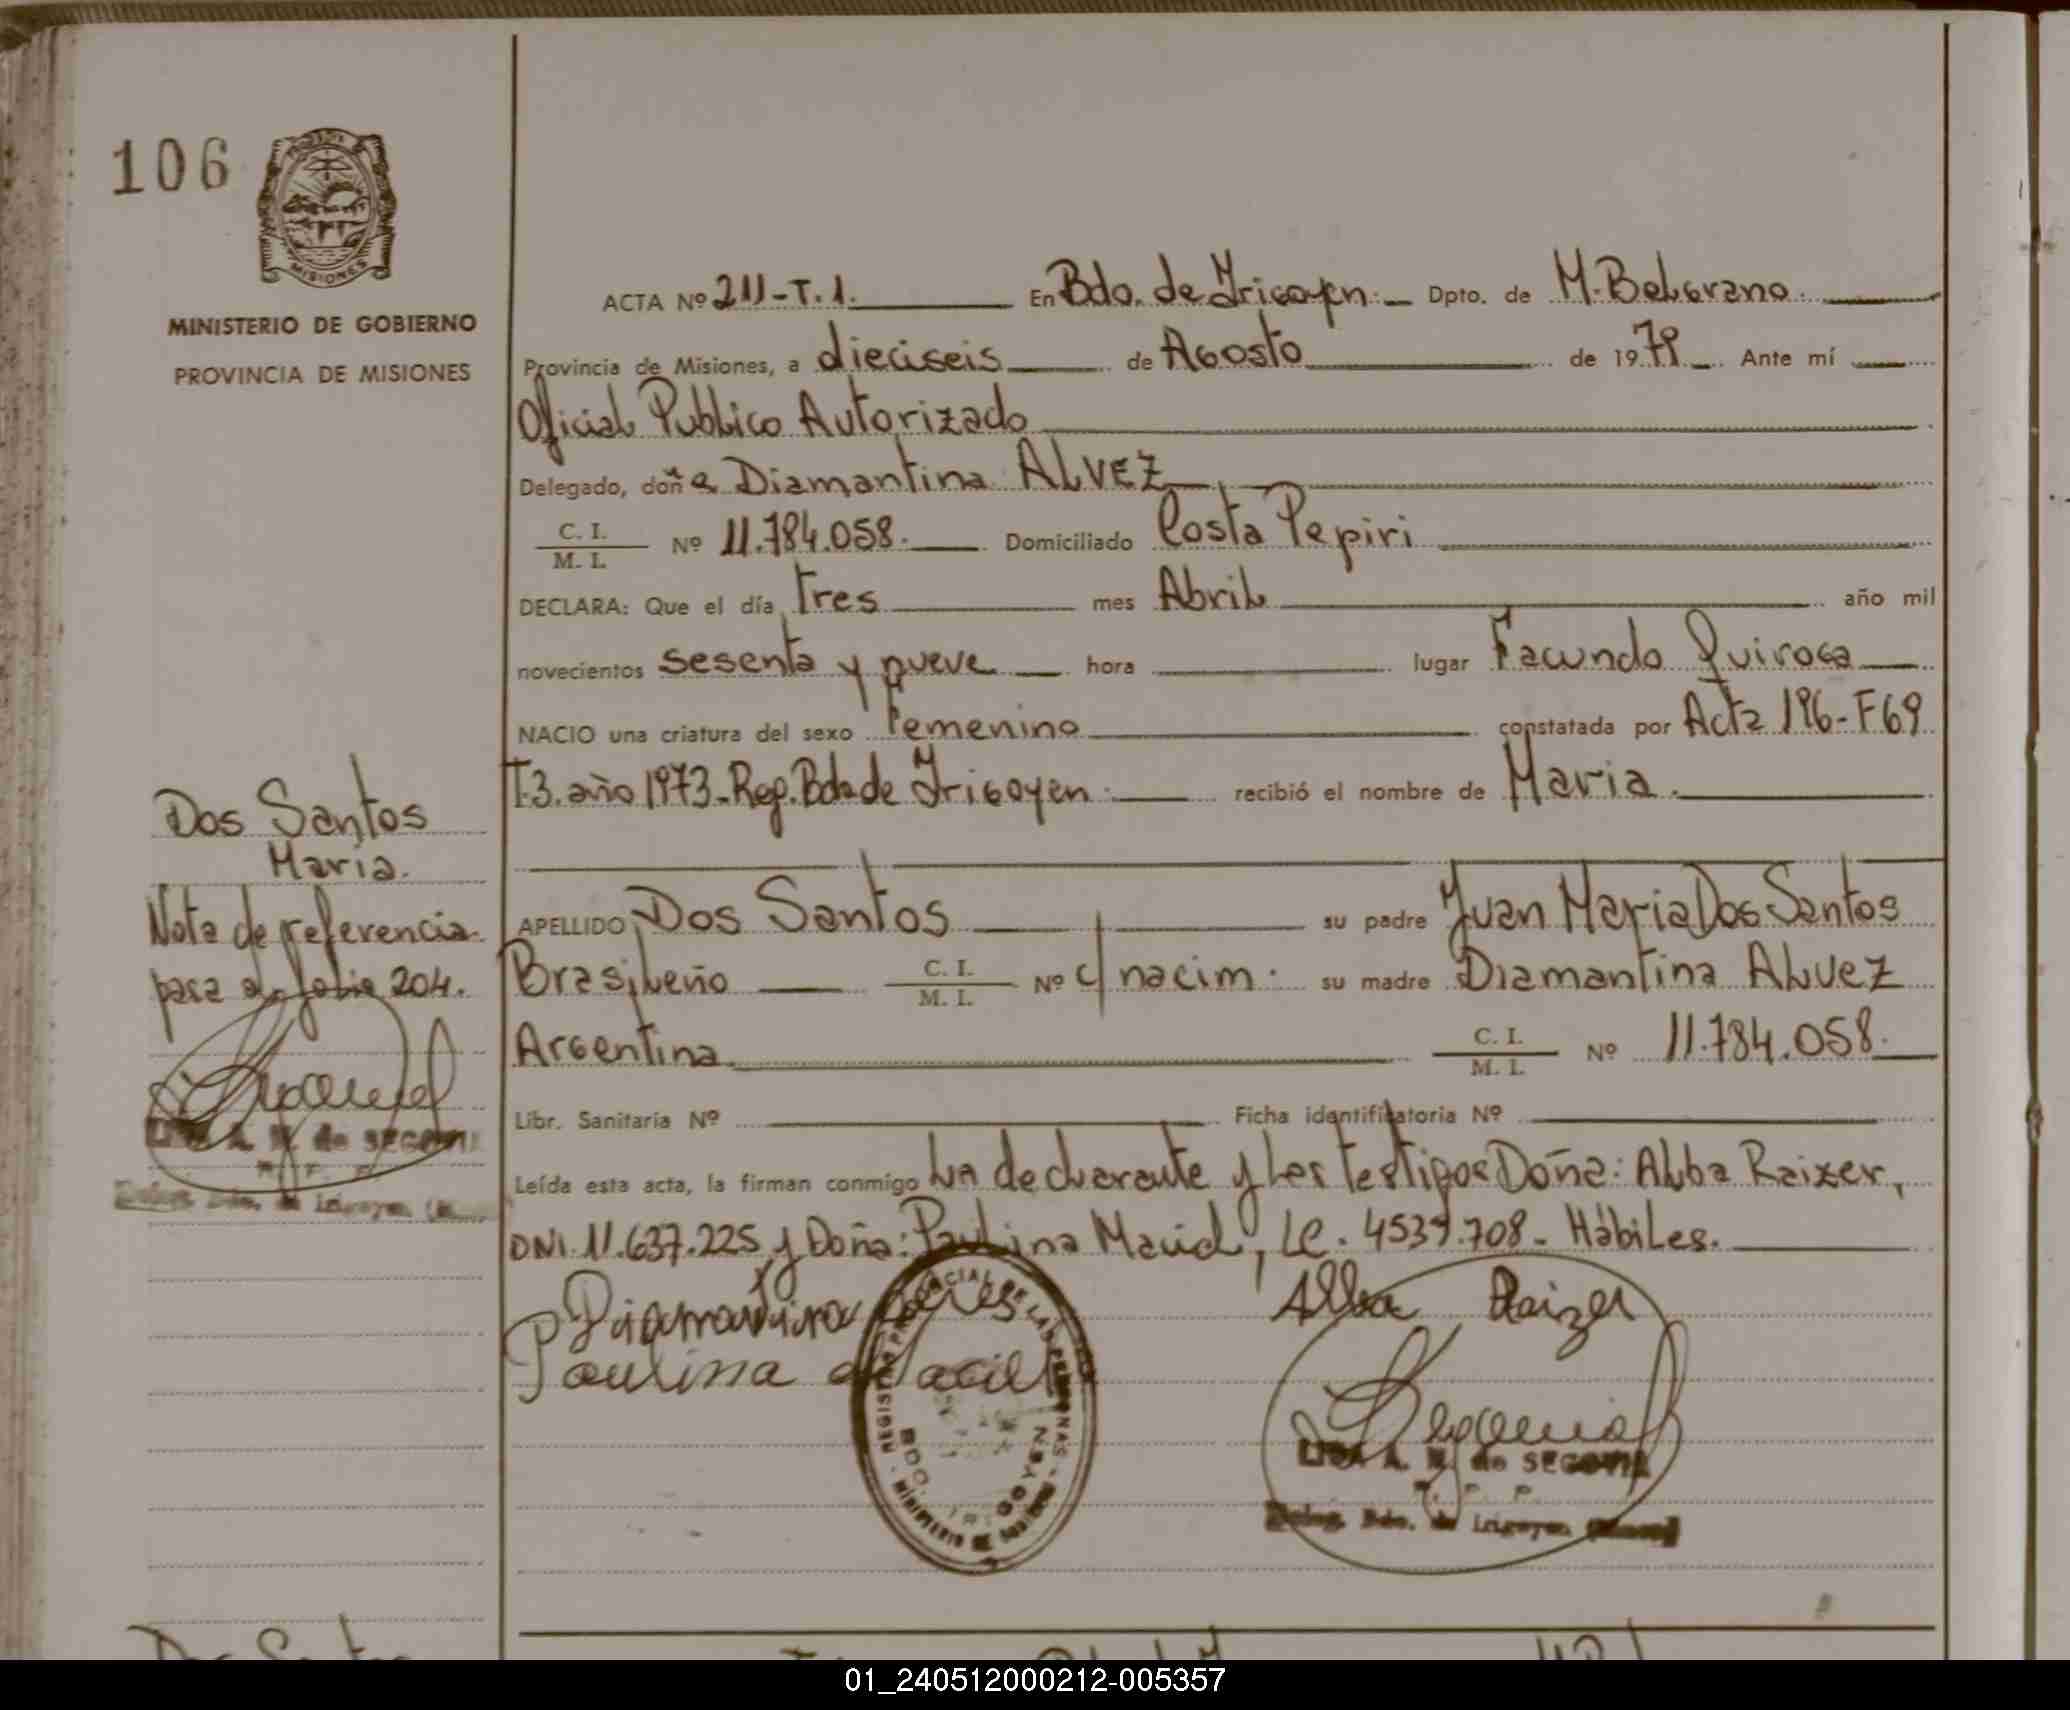 106
MISIONES
MINISTERIO DE GOBIERNO
PROVINCIA DE MISIONES
ACTA Nº 211-T.1. En Bdo. de Irigoyen. Dpto. de M. Belgrano.
Provincia de Misiones, a dieciseis de Agosto de 1979 Ante mí
Oficial Publico Autorizado
Delegado, doña Diamantina ALVEZ
C. I.
M. I. Nº 11.784.058. Domiciliado Costa Pepiri
DECLARA: Que el día Tres mes Abril año mil
novecientos sesenta y nueve hora lugar Facundo Quiroga
NACIO una criatura del sexo Femenino constatada por Acta 196-F69
T.3. año 1973. Reg. Bdo de Irigoyen. recibió el nombre de Maria.
Dos Santos
Maria.
Nota de referencia
para a folio 204.
APELLIDO Dos Santos su padre Juan Maria Dos Santos
Brasileño C. I. M. I. Nº c/ nacim. su madre Diamantina ALVEZ
Argentina C. I. M. I. Nº 11.784.058.
Libr. Sanitaria Nº Ficha identificatoria Nº
Leída esta acta, la firman conmigo La declarante y Las testigos Doña: Alba Raizer,
DNI. 11.637.225 y Doña: Paulina Maciel, LC. 4539.708 - Hábiles.
Diamantina
Alba Raizer
Paulina Maciel
REGISTRO PROVINCIAL DE LAS PERSONAS
BDO. IRIGOYEN
MINISTERIO DE GOBIERNO
A. M. de SEGOVIA
Deleg. Bdo. de Irigoyen
A. M. de SEGOVIA
Deleg. Bdo. de Irigoyen
01_240512000212-005357